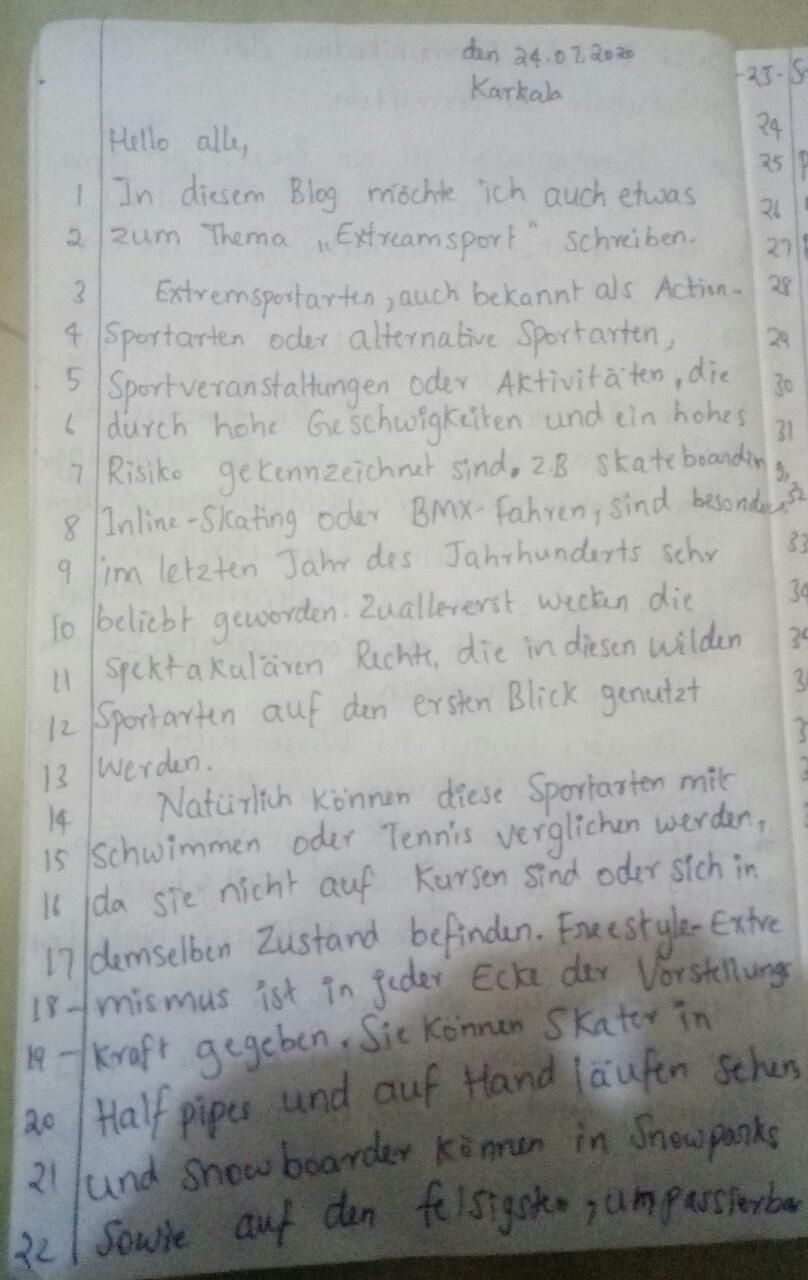 den 24.07.2020
Karkala
Hello alle,
1 In diesem Blog möchte ich auch etwas
2 zum Thema „Extreamsport" schreiben.
3 Extremsportarten, auch bekannt als Action-
4 Sportarten oder alternative Sportarten,
5 Sportveranstaltungen oder Aktivitäten, die
6 durch hohe Geschwigkeiten und ein hohes
7 Risiko gekennzeichnet sind. z.B skateboarding,
8 Inline-Skating oder BMX-fahren, sind besonders
9 im letzten Jahr des Jahrhunderts sehr
10 beliebt geworden. Zuallererst wecken die
11 spektakulären Rechte, die in diesen wilden
12 Sportarten auf den ersten Blick genutzt
13 werden.
14 Natürlich können diese Sportarten mit
15 schwimmen oder Tennis verglichen werden,
16 da sie nicht auf Kursen sind oder sich in
17 demselben Zustand befinden. Freestyle-Extre
18 - mismus ist in jeder Ecke der Vorstellungs
19 - kraft gegeben. Sie können Skater in
20 Halfpipes und auf Hand läufen sehen
21 und snowboarder können in Snowparks
22 sowie auf den felsigsten, umpassierbar
23 - S
24
25 P
26
27
28
29
30
31
32
33
34